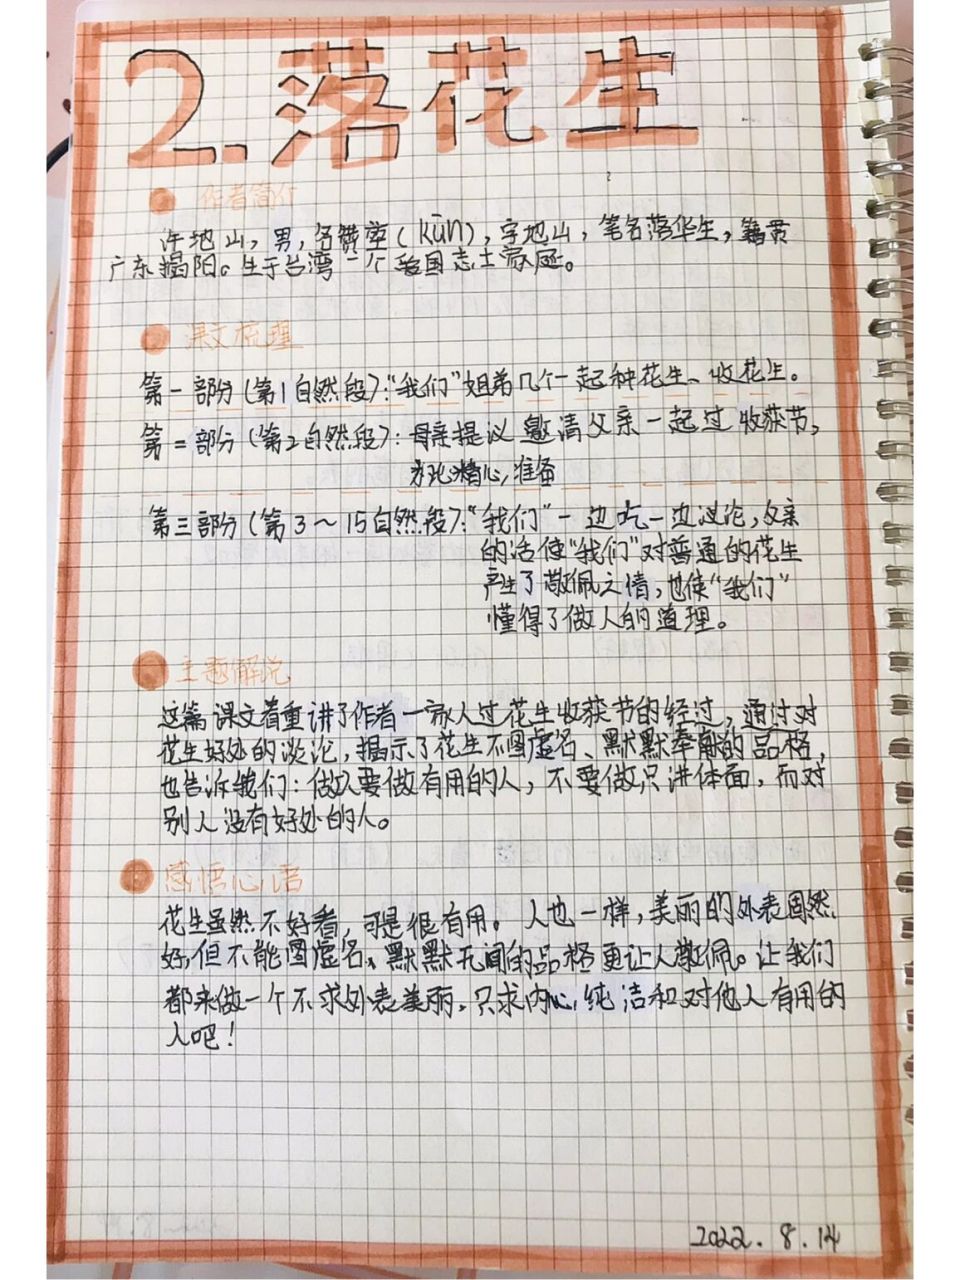 2.落花生
作者简介
许地山，男，名赞堃（kūn），字地山，笔名落华生，籍贯
广东揭阳。生于台湾一个爱国志士家庭。
课文梳理
第一部分（第1自然段）：“我们”姐弟几个一起种花生、收花生。
第二部分（第2自然段）：母亲提议邀请父亲一起过收获节，
并为此精心准备
第三部分（第3～15自然段）：“我们”一边吃一边议论，父亲
的话使“我们”对普通的花生
产生了敬佩之情，也使“我们”
懂得了做人的道理。
主题解说
这篇课文着重讲了作者一家人过花生收获节的经过，通过对
花生好处的谈论，揭示了花生不图虚名、默默奉献的品格，
也告诉我们：做人要做有用的人，不要做只讲体面，而对
别人没有好处的人。
感悟心语
花生虽然不好看，可是很有用。人也一样，美丽的外表固然
好，但不能图虚名、默默无闻的品格更让人敬佩。让我们
都来做一个不求外表美丽，只求内心纯洁和对他人有用的
人吧！
2022.8.14